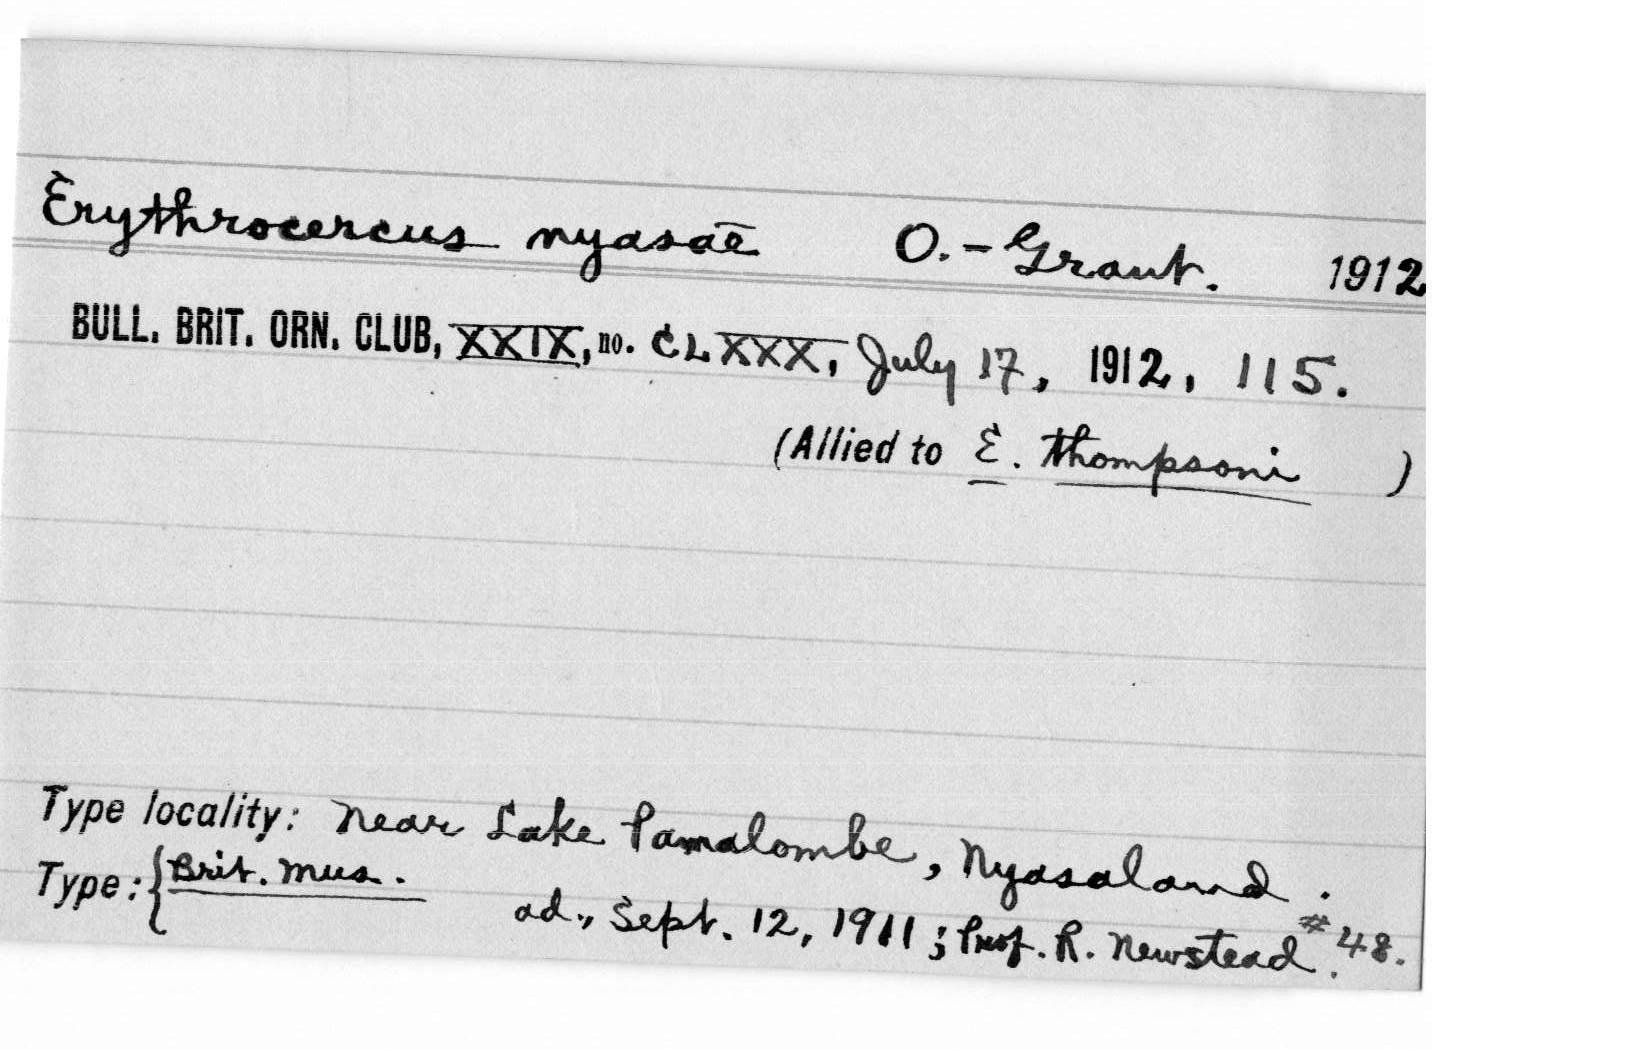 Erythrocercus nyasae O.-Grant. 1912
BULL. BRIT. ORN. CLUB, XXIX, no. CLXXX, July 17, 1912, 115.
(Allied to E. thompsoni )
Type locality: Near Lake Pamalombe, Nyasaland.
Type: { Brit. Mus.
ad., Sept. 12, 1911; Prof. R. Newstead. #48.